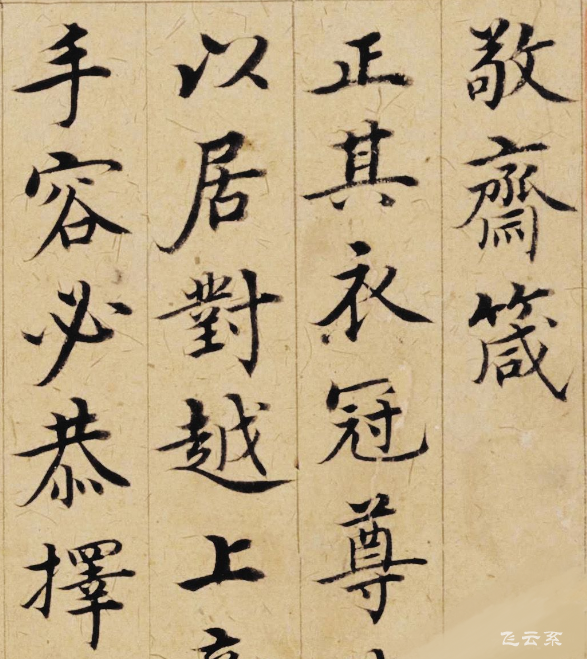 敬齋箴
正其衣冠尊
以居對越上
手容必恭擇
飞云系